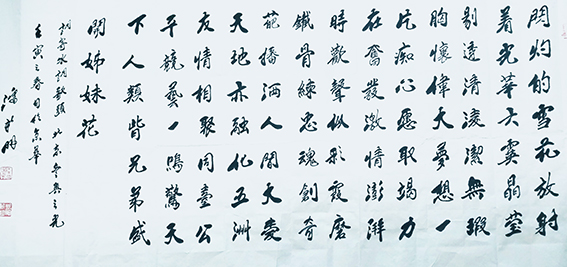 閃灼的雪花放射
着光華大寰晶瑩
剔透清淩潔無瑕
胸懷偉大夢想一
片痴心愿取竭力
在奮發激情澎湃
時歡聲似彩霞磨
鐵骨練忠魂創奇
葩播洒人間大愛
天地亦融化五洲
友情相聚同臺公
平競藝一鳴驚天
下人類皆兄弟盛
開姊妹花
調寄水調歌頭 北京冬奥之光
壬寅之春月於京華